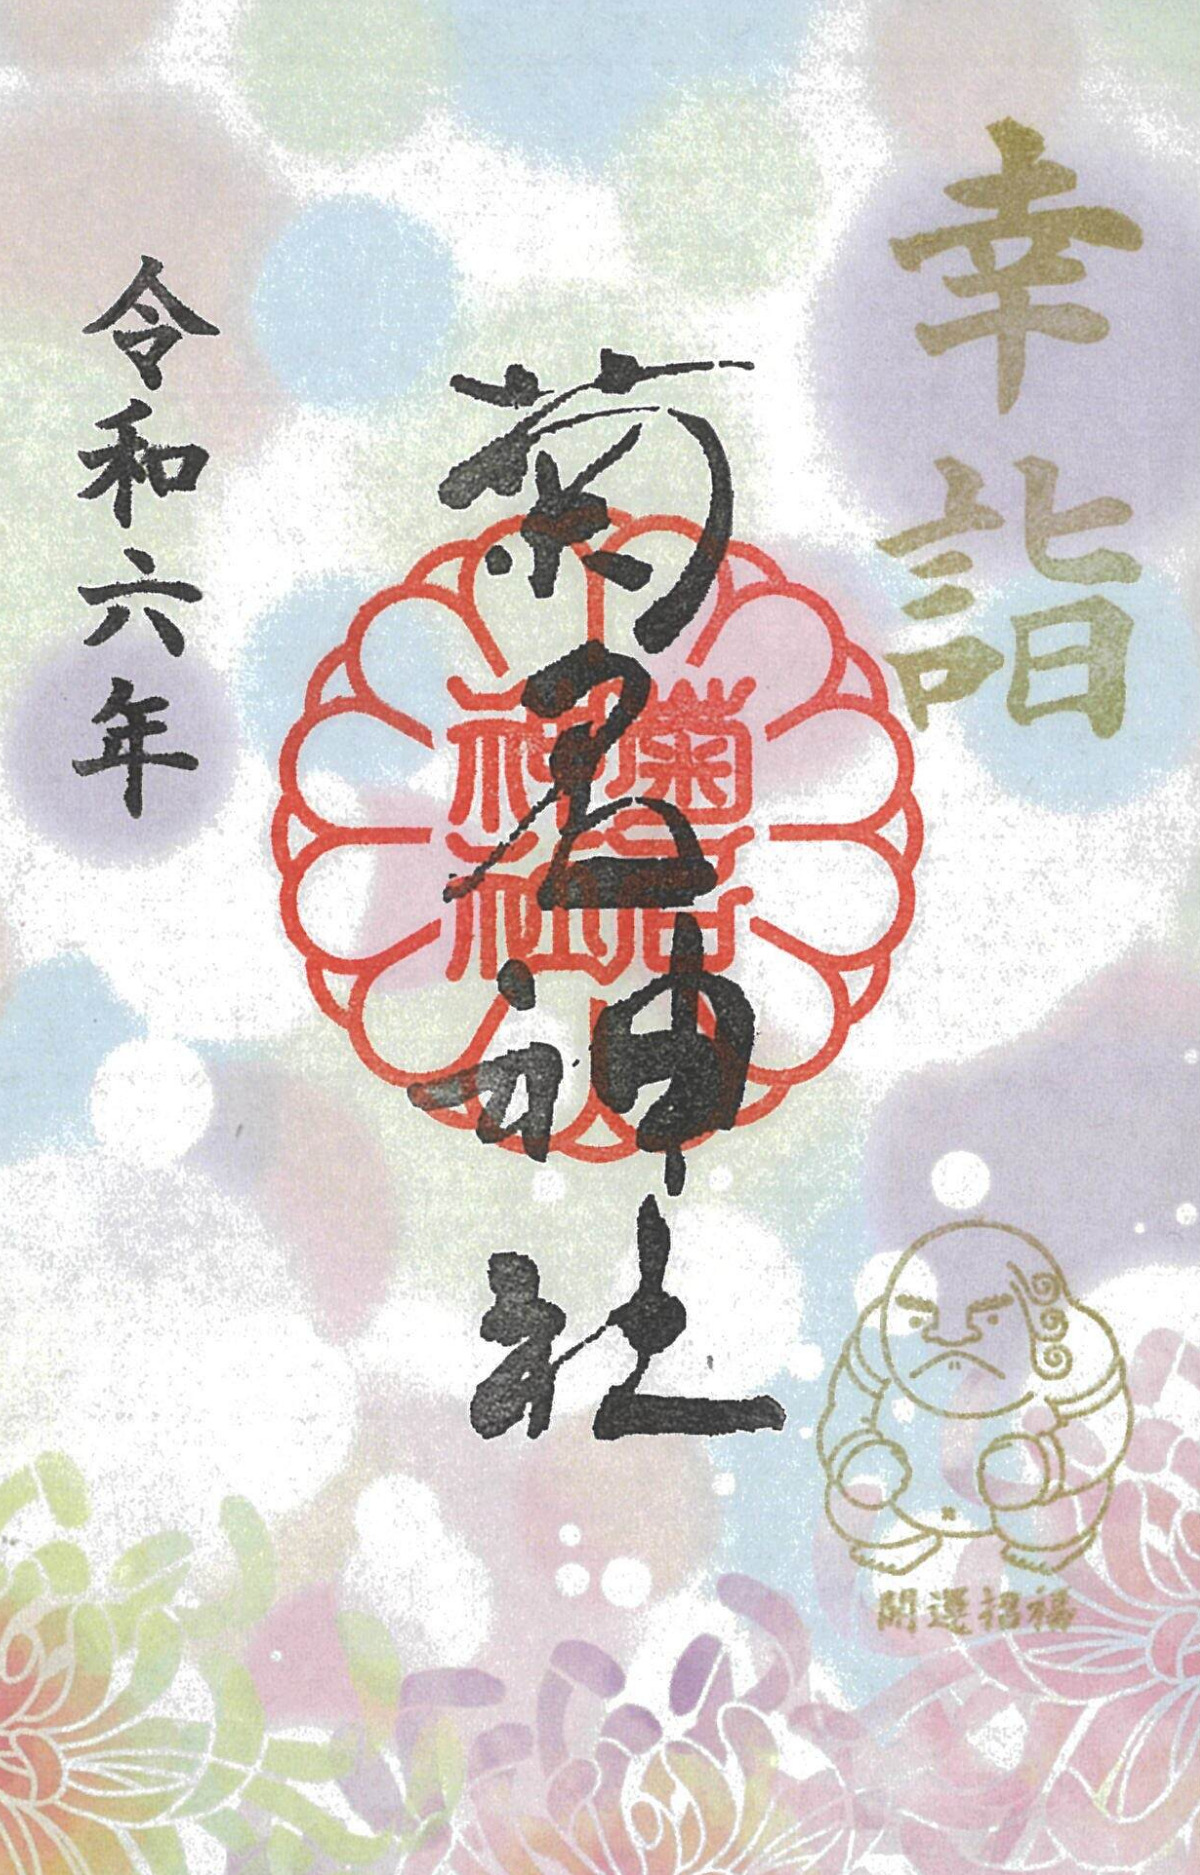 幸詣
菊名神社
菊名
神社
令和六年
開運招福